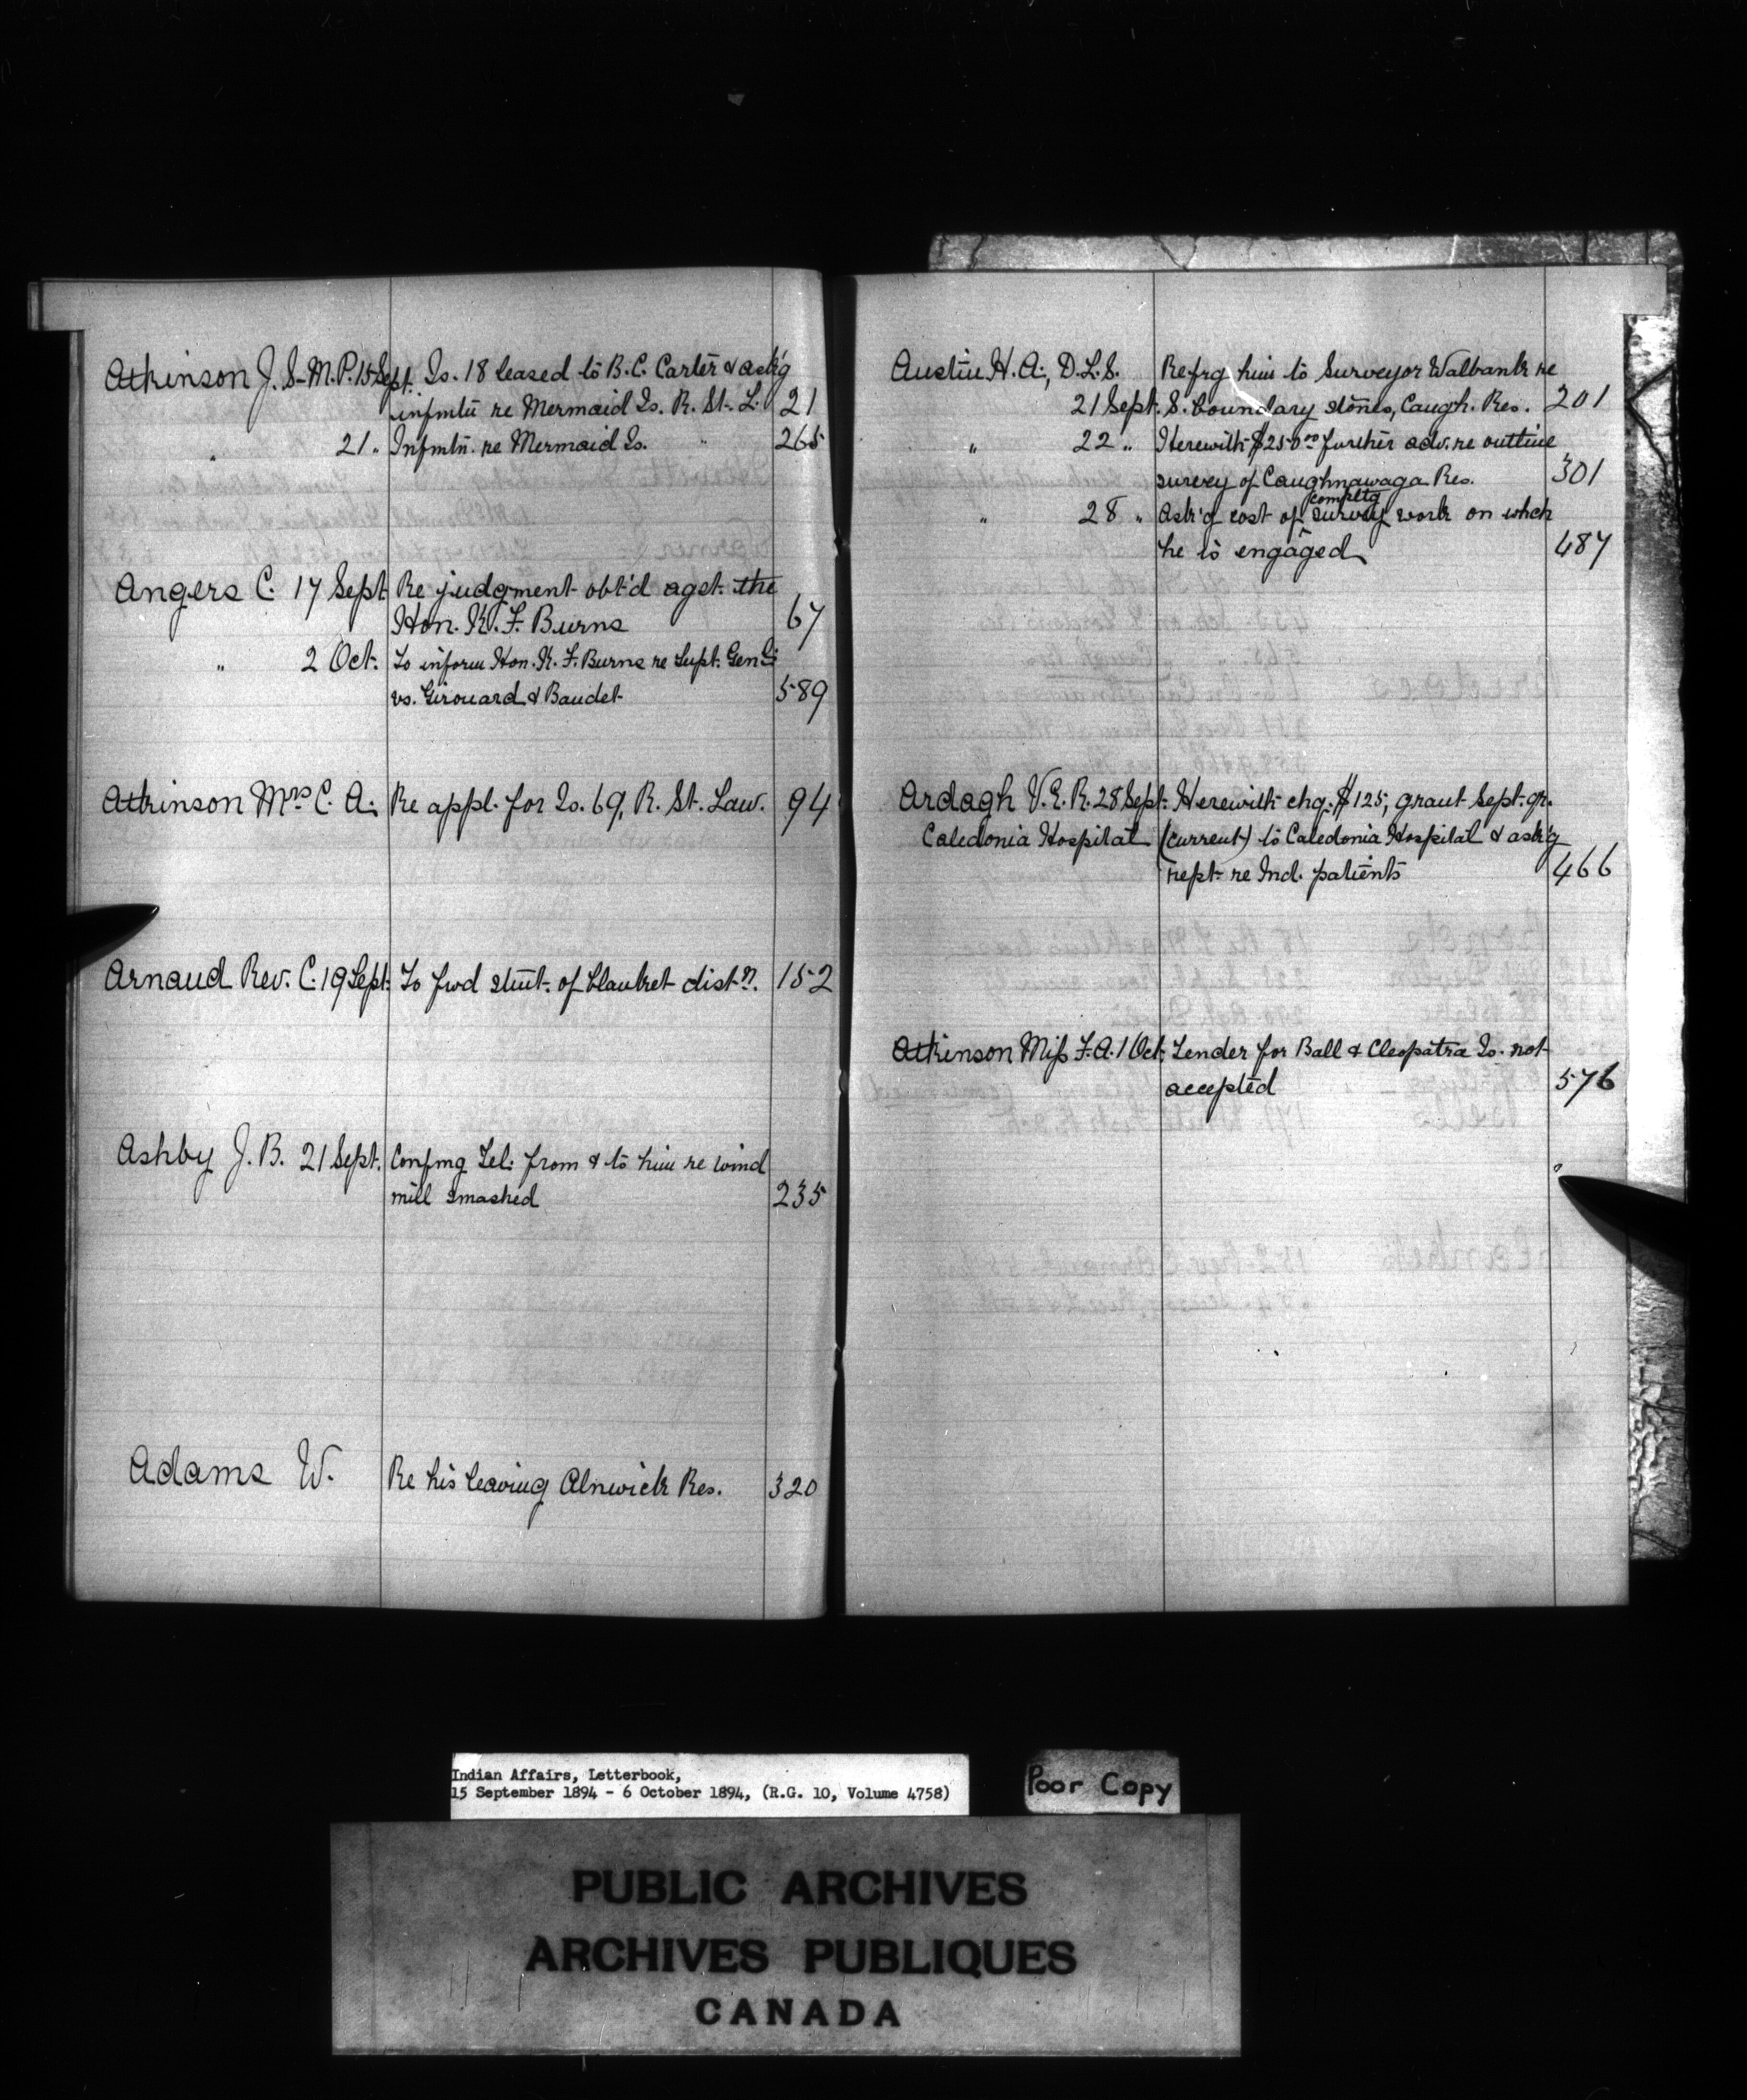 Atkinson J. S. M.P. 15 Sept. Is. 18 leased to B. C. Carter & ask'g
infmtn re Mermaid Is. R. St. L. 21
" 21 " Infmtn. re Mermaid Is. " 265
Angers C. 17 Sept. Re judgment obt'd agst. the
Hon. K. F. Burns 67
" 2 Oct. To inform Hon. K. F. Burns re Supt. Gen'l
vs. Girouard & Baudet 589
Atkinson Mrs C. A. Re appl. for Is. 69, R. St. Law. 94
Arnaud Rev. C. 19 Sept. To fwd stmt. of blanket distn. 152
Ashby J. B. 21 Sept. Confmg Tel. from & to him re wind
mill smashed 235
Adams W. Re his leaving Alnwick Res. 320
Austin H. A., D.L.S. Refrg him to Surveyor Walbank re
21 Sept. S. boundary stones, Caugh. Res. 201
" 22 " Herewith $250.00 further adv. re outline
survey of Caughnawaga Res. 301
" 28 " Ask'g cost of compltg survey work on which
he is engaged 487
Ardagh V. E. R. 28 Sept. Herewith chq. $125, grant Sept. qr.
Caledonia Hospital (current) to Caledonia Hospital & ask'g
rept. re Ind. patients 466
Atkinson Miss F. A. 1 Oct. Tender for Ball & Cleopatra Is. not
accepted 576
Indian Affairs, Letterbook,
15 September 1894 - 6 October 1894, (R.G. 10, Volume 4758)
Poor Copy
PUBLIC ARCHIVES
ARCHIVES PUBLIQUES
CANADA